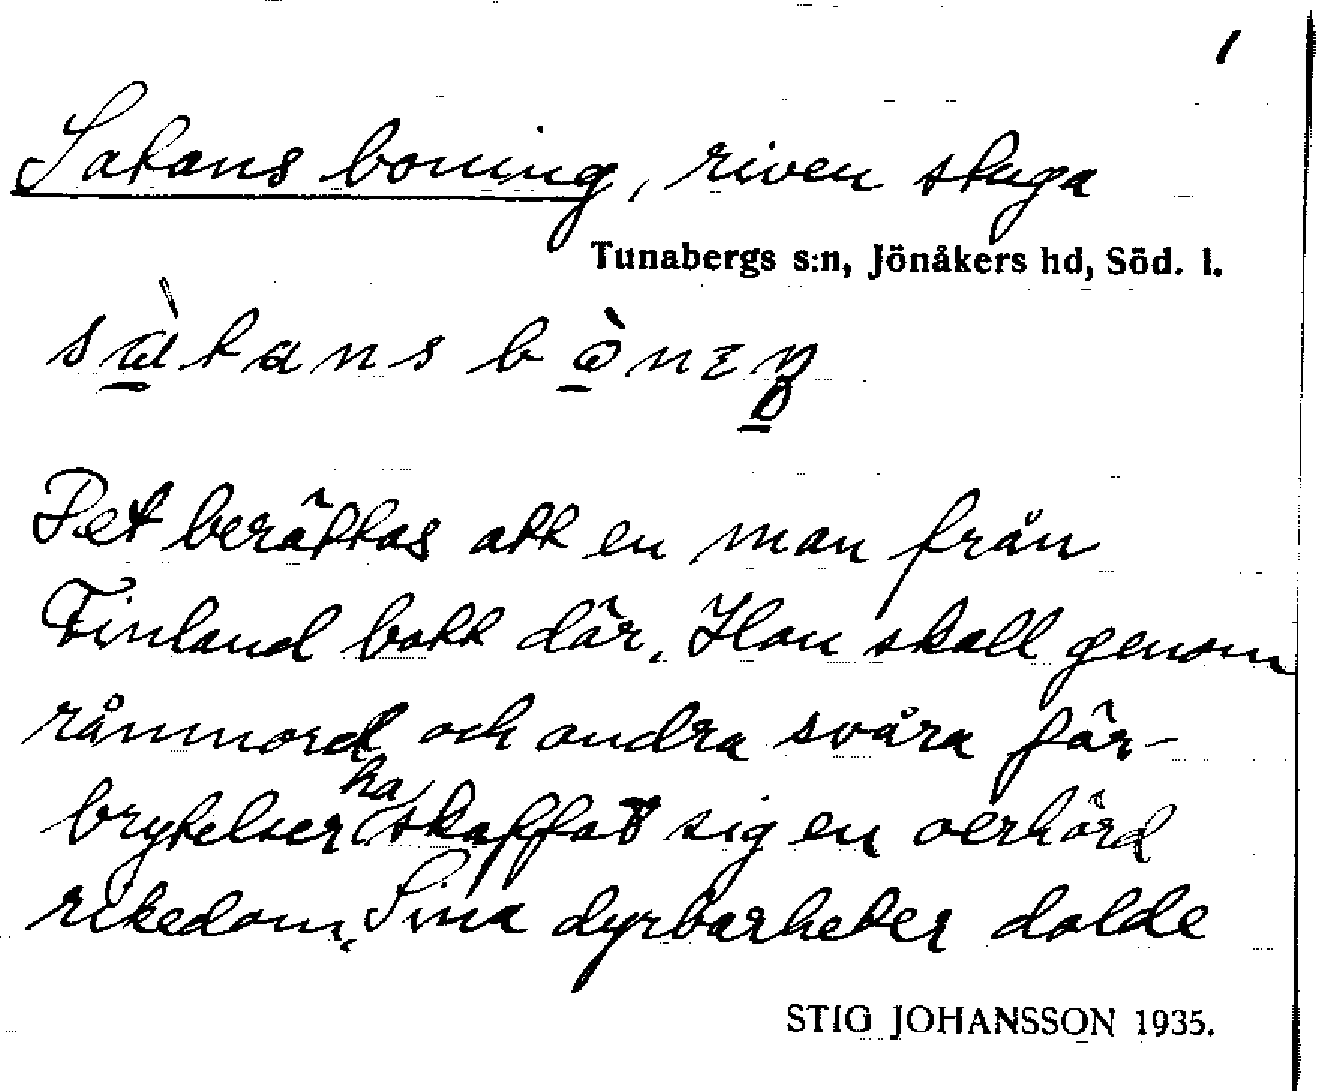 1
Satans boning, riven stuga
Tunabergs s:n, Jönåkers hd, Söd. l.
sàtans bònıŋ
Det berättas att en man från
Finland bott där. Han skall genom
rånmord och andra svåra för-
brytelser ha skaffat sig en oerhörd
rikedom. Sina dyrbarheter dolde
STIG JOHANSSON 1935.